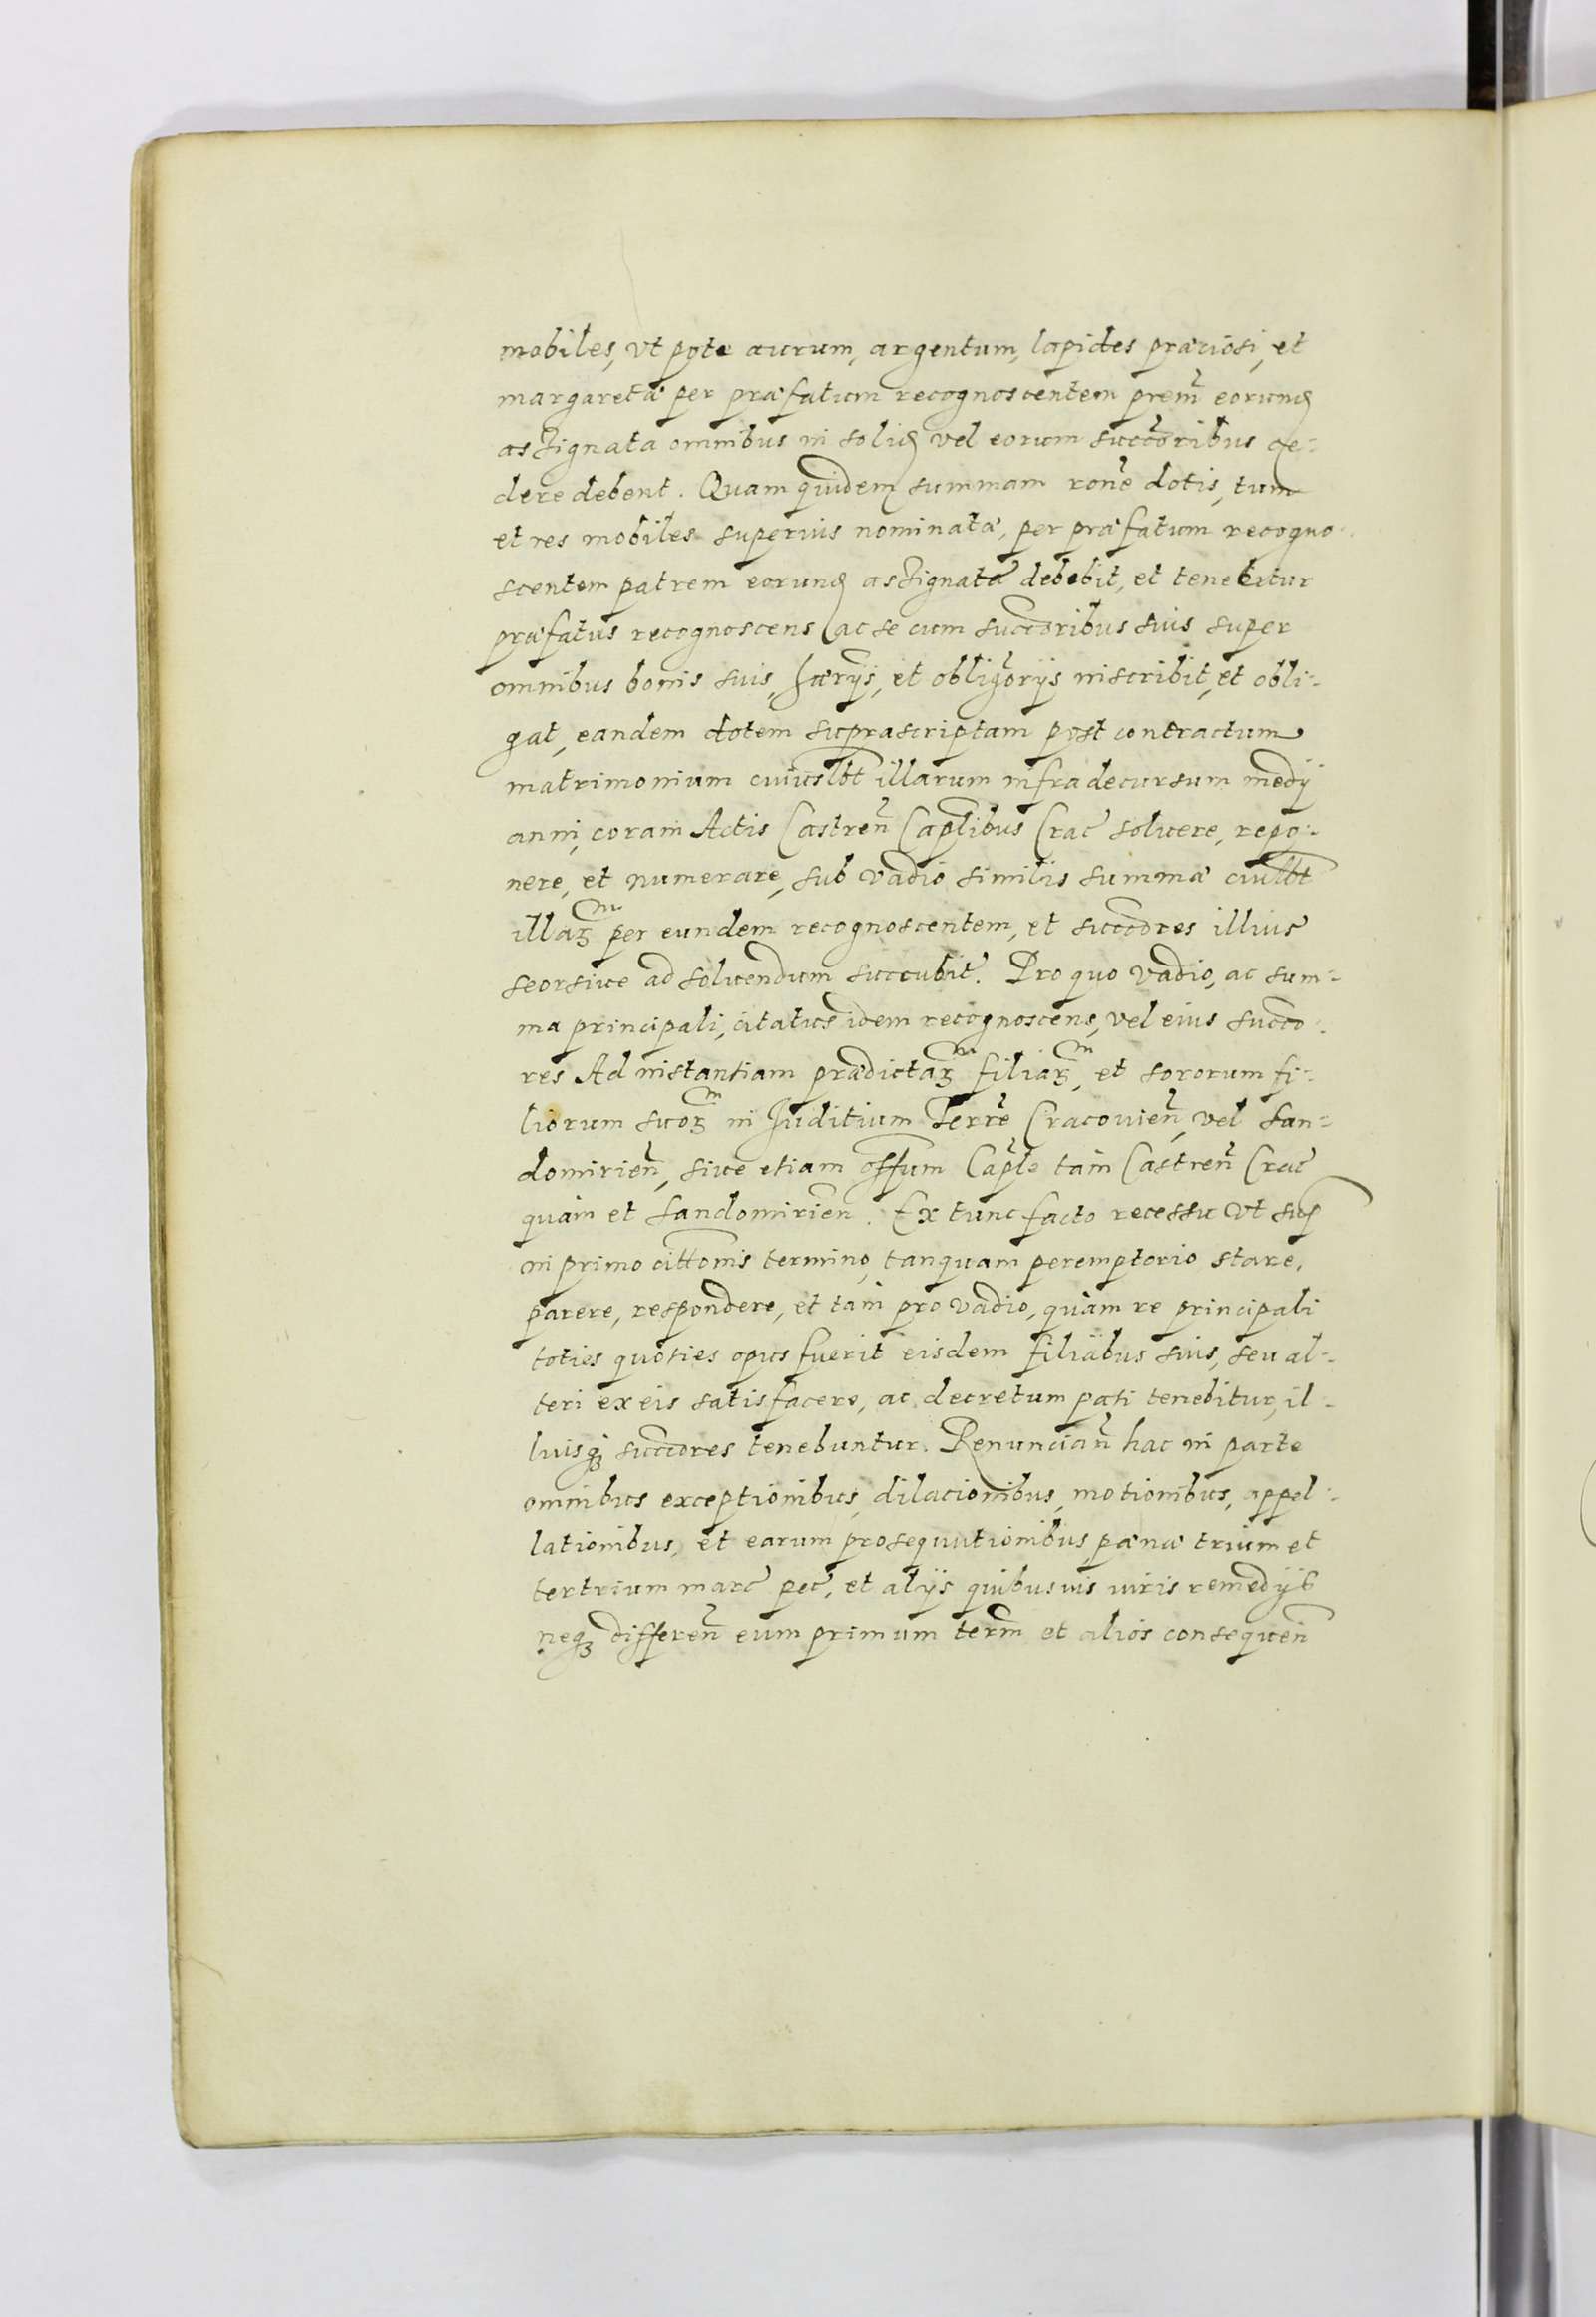 mobiles, vt pote aurum, argentum, lapides præciosi, et
margaretæ per præfatum recognoscentem prem̃ eorund
assignata omnibus in solid vel eorum succoribus ce:
dere debent. Quam quidem summam rone dotis, tum
et res mobiles superius nominatæ, per præfatum recogno:
scentem patrem eorund assignatæ debebit, et tenebitur
præfatus recognoscens (ac se cum succoribus suis super
omnibus bonis suis, hæryś, et obligoryś inscribit, et obli:
gat, eandem dotem suprascriptam post contractum
matrimonium cuiuslbt illarum infra decursum medÿ
anni, coram Actis Castren̄ Caplibus Crac̄ soluere, repo:
nere, et numerare, sub vadio similis summæ cuiuslbt
illaꝝ per eundem recognoscentem, et succores illius
seorsiue ad soluendum succubit. Pro quo vadio, ac sum:
ma principali, citatus idem recognoscens, vel eius succo:
res Ad instantiam prædictaꝝ filiaꝝ, et sororum fi:
liorum suoꝝ in Juditium Terrē Cracouien̄, vel San:
domirien̄, siue etiam offium Caple tam Castren̄ Crac̄
quam et Sandomirien̄. Ex tunc facto recessu vt sup
in primo cittonis termino, tanquam peremptorio stare,
parere, respondere, et tam pro vadio, quàm re principali
toties quoties opus fuerit eisdem filiabus suis, seu al:
teri ex eis satisfacere, ac decretum pati tenebitur, il:
luisqꝫ succores tenebuntur. Renuncian̄ hac in parte
omnibus exceptionibus, dilacionibus, motionibus, appel:
lationibus, et earum prosequutionibus pænæ trium et
ter trium marc̄ pec̄, et alÿs quibusuis iuris remedÿs
neqꝫ differen̄ eum primum term̄ et alios consequen̄